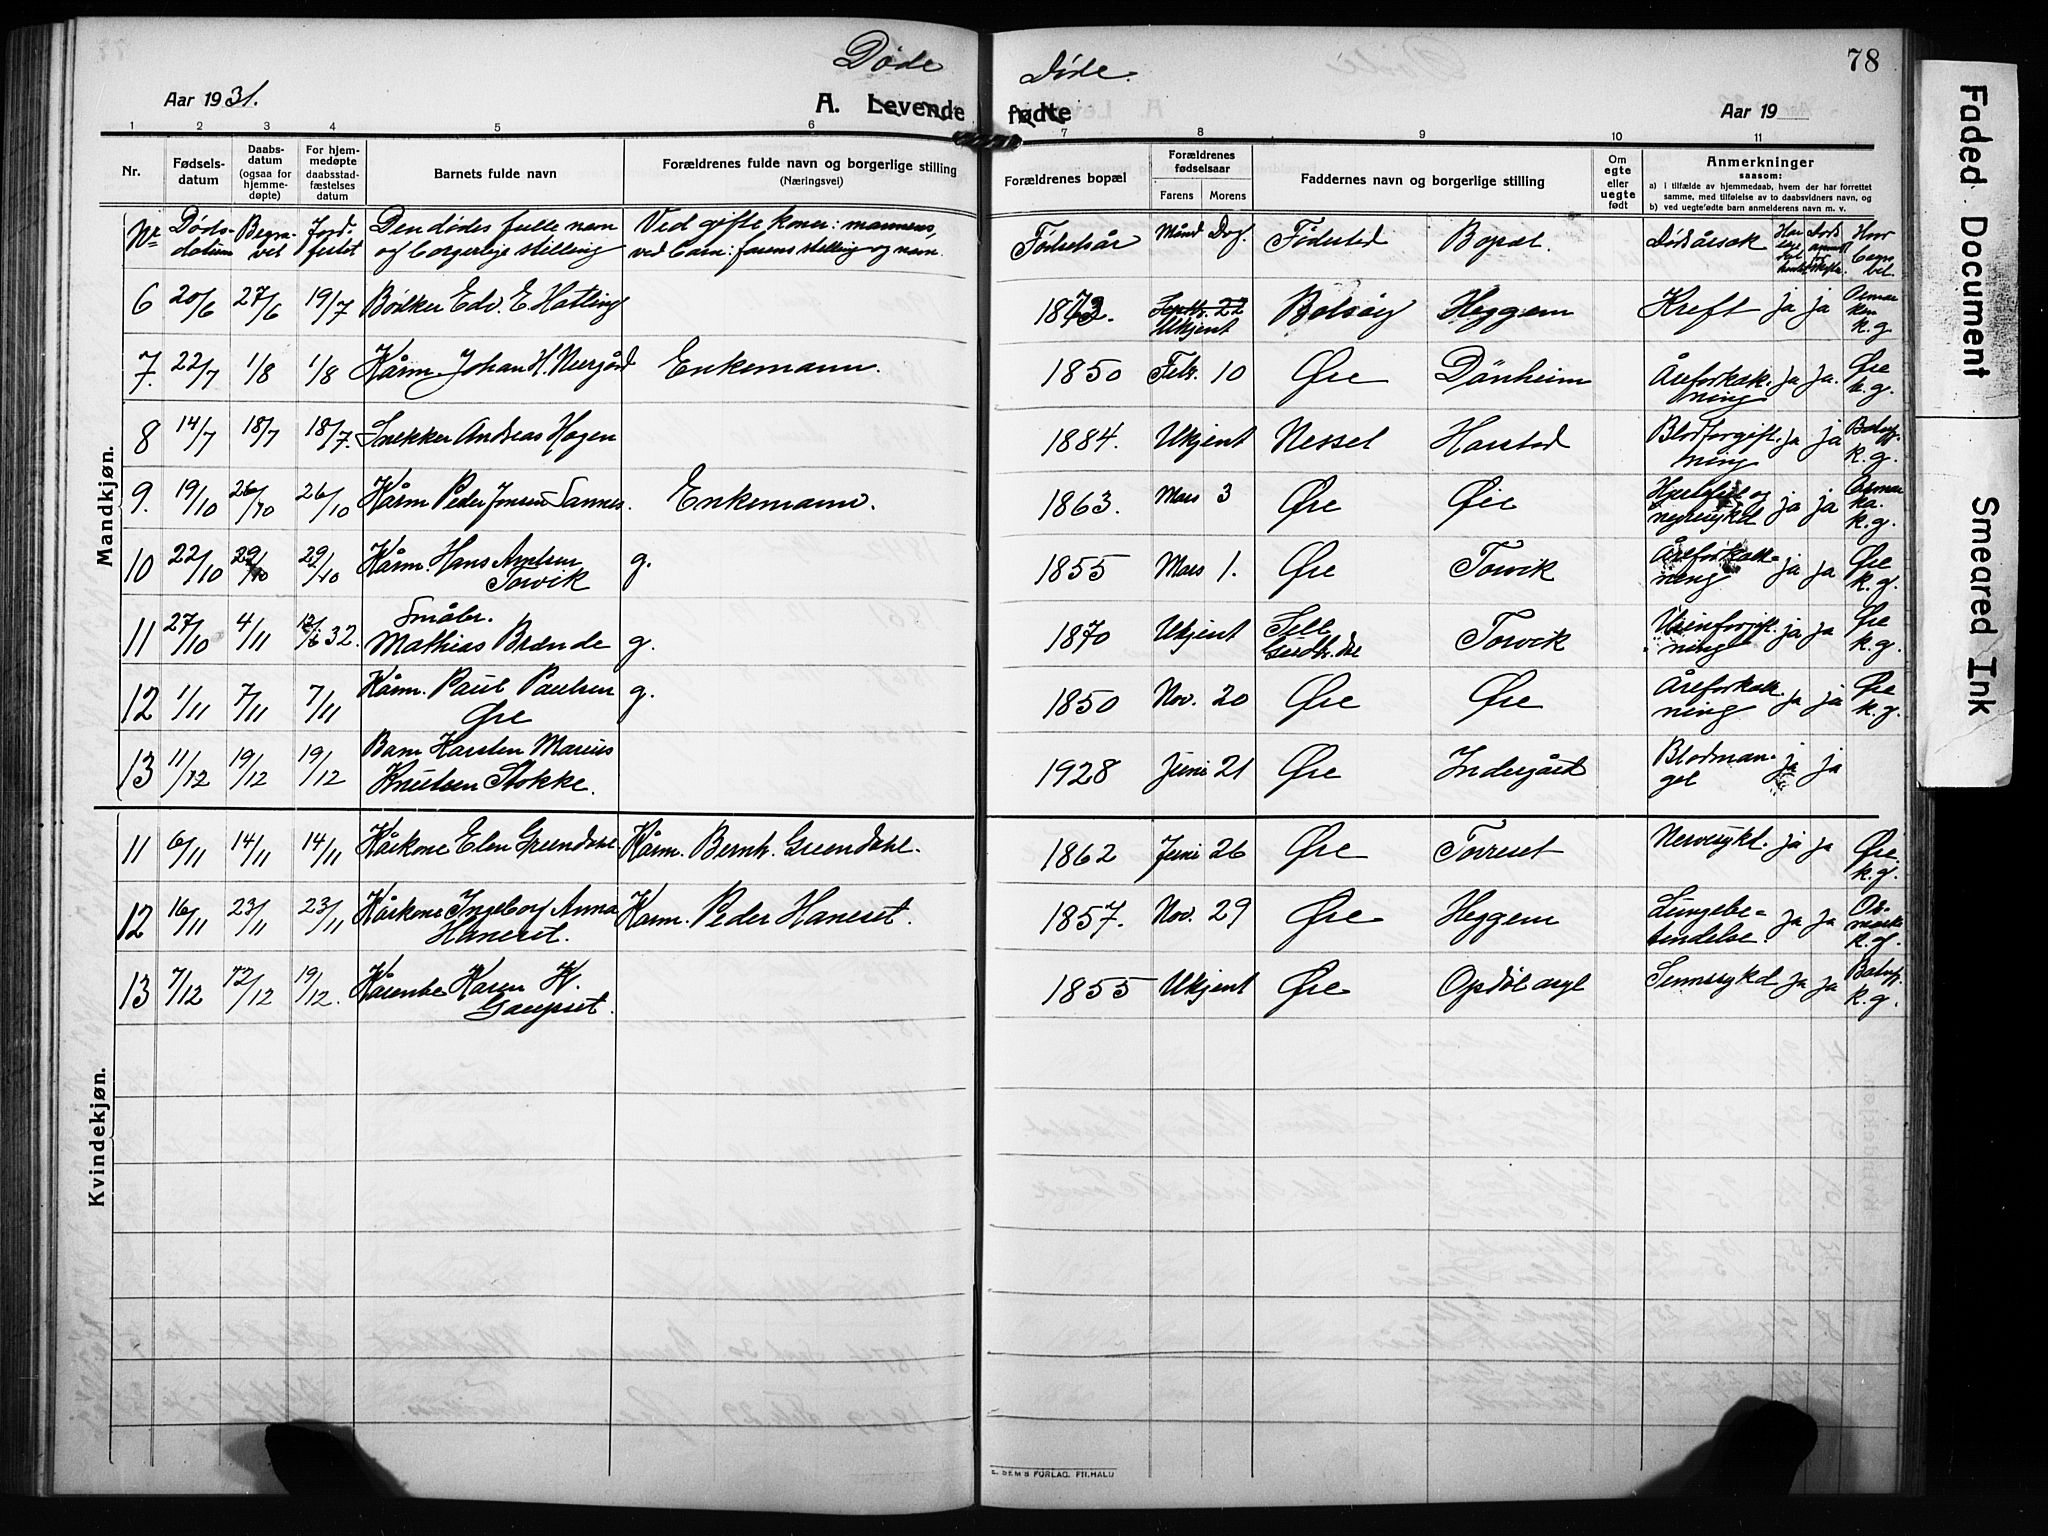 78
Døde
Døde.
Aar 1931.
A. Levende
fødte
Aar 19
1 2 3 4 5 6 7 8 9 10 11
Nr.
Fødsels-
datum
Daabs-
datum
(ogsaa for
hjemme-
døpte)
For hjem-
medøpte
daabsstad-
fæstelses
datum
Barnets fulde navn
Forældrenes fulde navn og borgerlige stilling
(Næringsvei)
Forældrenes bopæl
Forældrenes
fødselsaar
Farens Morens
Faddernes navn og borgerlige stilling
Om
egte
eller
uegte
født
Anmerkninger
saasom:
a) i tilfælde av hjemmedaab, hvem der har forrettet
samme, med tilføielse av to daabsvidners navn, og
b) ved uegte fødte barn anmelderens navn m. v.
Nr. Døds-
datum Begra-
vet Jord-
festet Den dødes fulle navn
og borgerlige stilling Ved gifte koner: mannens,
ved barn: farens stilling og navn. Fødselsår Månd Dag. Fødested Bopæl. Dødsårsak Hvor
begra-
vet.
Mandkjøn.
6 20/6 27/6 19/7 Bødker Edv. E. Hatling 1873. Septbr. 22
Ukjent Bolsøy Heggem Kreft ja ja Osmar
ken
k.g.
7. 22/7 1/8 1/8 Kårm. Johan H. Neergård Enkemann. 1850 Febr. 10 Øre Dønheim Åreforkalk-
ning ja ja. Øre
k.g.
8 14/7 18/7 18/7. Snekker Andreas Hagen 1884. Ukjent Nesset Harstad Blodforgift-
ning ja ja k.g.
9. 19/10 26/10 26/10 Kårm Peder Jonsen Sannes. Enkemann. 1863. Mars 3 Øre Øre Hjertefeil og
nyresykd ja ja Osmar
ka.
k.g.
10 22/10 29/10 29/10 Kårm. Hans Arntsen
Torvik g. 1855 Mars 1. Øre Torvik Åreforkalk-
ning ja ja Øre
k.g.
11 27/10 4/11 32. Småbr.
Mathias Brænde g. 1870 Ukjent Sell
Gudbr.dal Torvik Urinforgift-
ning ja ja Øre
k.g.
12 1/11 7/11 7/11 Kårm. Paul Paulsen
Øre g. 1850 Nov. 20 Øre Øre Åreforkalk-
ning ja ja Øre
k.g.
13 11/12 19/12 19/12 Barn Karsten Marius
Knutsen Stokke. 1928 Juni 21 Øre Indergård Blodman-
gel ja ja
Kvindekjøn.
11 6/11 14/11 14/11 Kårkone Elen Grøndahl Kårm. Bernh. Grøndahl. 1862 Juni 26 Øre Torreset Nervesykd. ja ja Øre.
k.g.
12 16/11 23/11 23/11 Kårkone Ingeborg Anna
Haneset. Kårm. Peder Haneset. 1857. Nov. 29 Øre Heggem Lungebe-
tendelse. ja ja Os-
marka
k.g.
13 7/12 12/12 19/12. Kårenke Karen K.
Gaupset. 1855 Ukjent Øre Opdøl asyl Sinnssykd ja ja k.g.
E. SEM'S FORLAG, FR.HALD
Faded Document
Smeared Ink